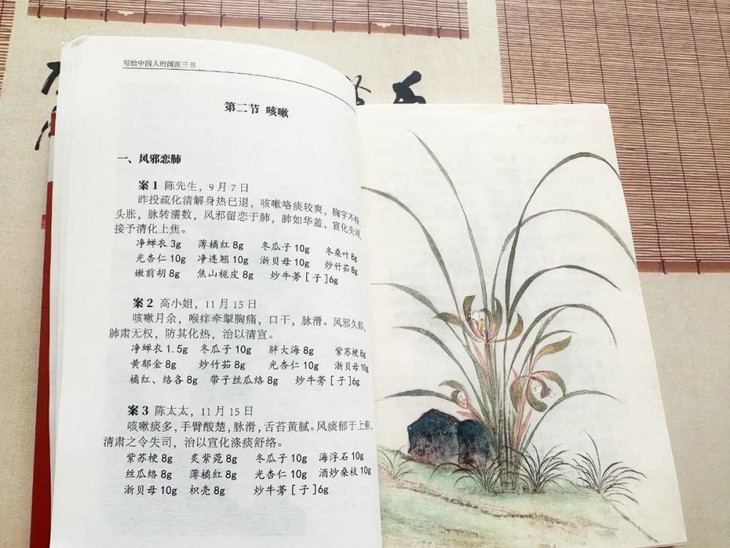 写给中国人的闺阁三书
第二节 咳嗽
一、风邪恋肺
案1 陈先生，9月7日
昨投疏化清解身热已退，咳嗽咯痰较爽，胸字不畅，
头胀，脉转濡数，风邪留恋于肺，肺如华盖，宣化失司，
接予清化上焦。
净蝉衣 3g 薄橘红 8g 冬瓜子 10g 冬桑叶 8g
光杏仁 10g 净连翘 10g 浙贝母 10g 炒竹茹 8g
嫩前胡 8g 焦山栀皮 8g 炒牛蒡［子］6g
案2 高小姐，11月15日
咳嗽月余，喉痒牵掣胸痛，口干，脉滑。风邪久郁，
肺肃无权，防其化热，治以清宣。
净蝉衣 1.5g 冬瓜子 10g 胖大海 8g 紫苏梗 8g
黄郁金 8g 炒竹茹 8g 光杏仁 10g 浙贝母 10g
橘红、络各 2g 带子丝瓜络 8g 炒牛蒡［子］6g
案3 陈太太，11月15日
咳嗽痰多，手臂酸楚，脉滑，舌苔黄腻。风痰郁于上焦，
清肃之令失司，治以宣化涤痰舒络。
紫苏梗 8g 炙紫菀 8g 冬瓜子 10g 海浮石 10g
丝瓜络 8g 薄橘红 8g 光杏仁 10g 酒炒桑枝 10g
浙贝母 10g 枳壳 8g 炒牛蒡［子］6g